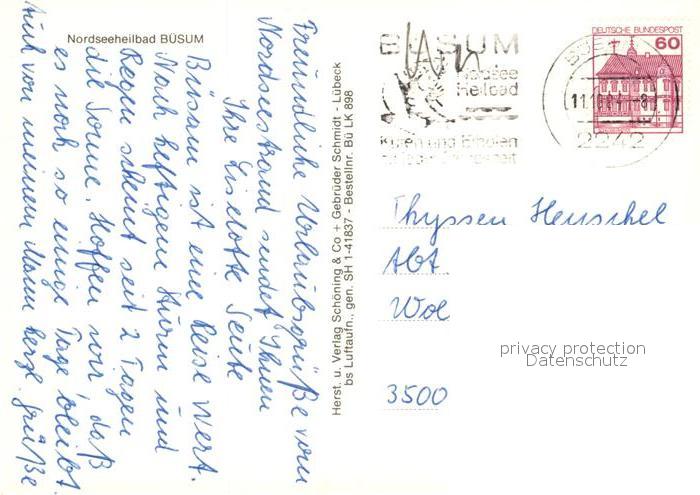 Nordseeheilbad BÜSUM
Freundliche Urlaubsgrüße vom
Nordseestrand sendet Ihnen
Ihre Liselotte Seute
Büsum ist eine Reise wert.
Nach heftigem Sturm und
Regen scheint seit 2 Tagen
die Sonne. Hoffen wir, daß
es noch so einige Tage bleibt.
Auch von meinem Mann herzl. Grüße
Herst. u. Verlag Schöning & Co + Gebrüder Schmidt - Lübeck
bs Luftaufn., gen. SH 1-41837 - Bestellnr. Bü LK 898
BÜSUM
Nordsee
Heilbad
Kuren und Erholen
DEUTSCHE BUNDESPOST
60
2242
Thyssen Henschel
Abt.
3500
privacy protection
Datenschutz